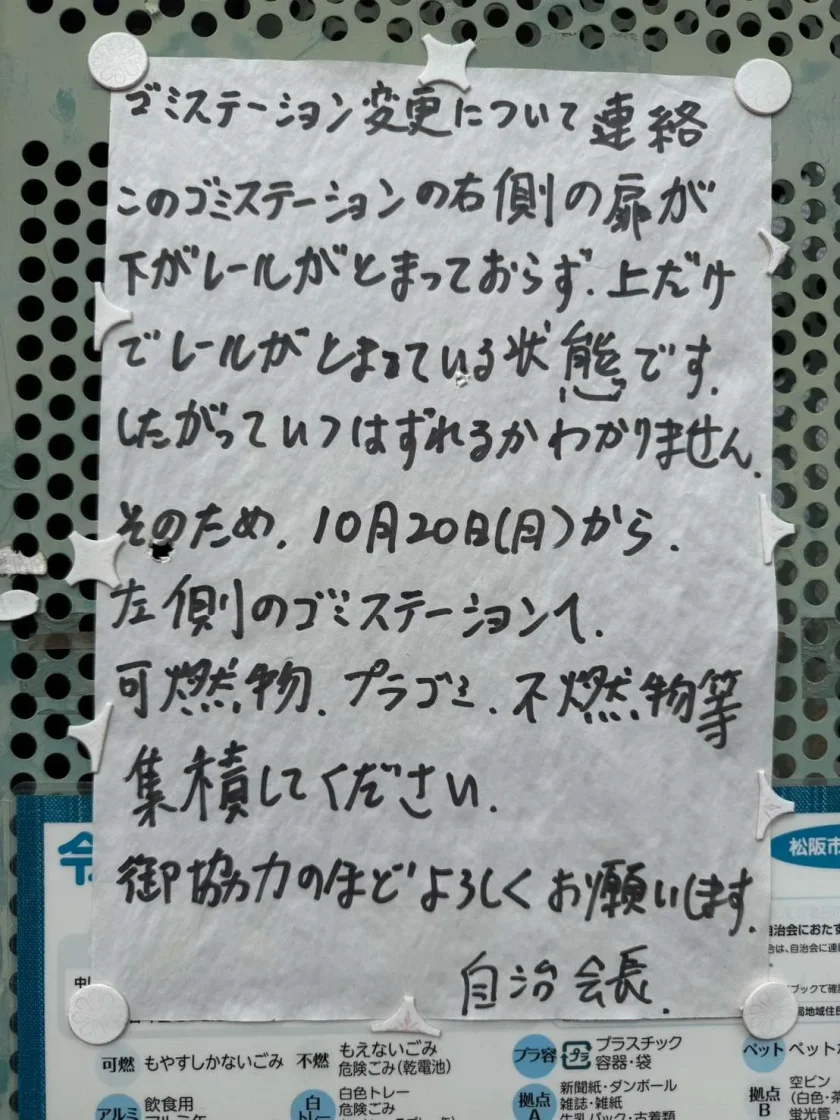 ゴミステーション変更について連絡
このゴミステーションの右側の扉が
下がレールがとまっておらず、上だけ
でレールがとまっている状態です。
したがっていつはずれるかわかりません。
そのため、10月20日(月)から、
左側のゴミステーションへ、
可燃物、プラゴミ、不燃物等
集積してください。
御協力のほどよろしくお願いします。
自治会長.
松阪市
自治会におたず
可燃 もやすしかないごみ
不燃 もえないごみ
危険ごみ(乾電池)
プラ容 プラ プラスチック
容器・袋
ペット ペット
アルミ 飲食用
白トレー 白色トレー
危険ごみ
拠点A 新聞紙・ダンボール
雑誌・雑紙
牛乳パック・古着類
拠点B 空ビン
(白色・
蛍光管